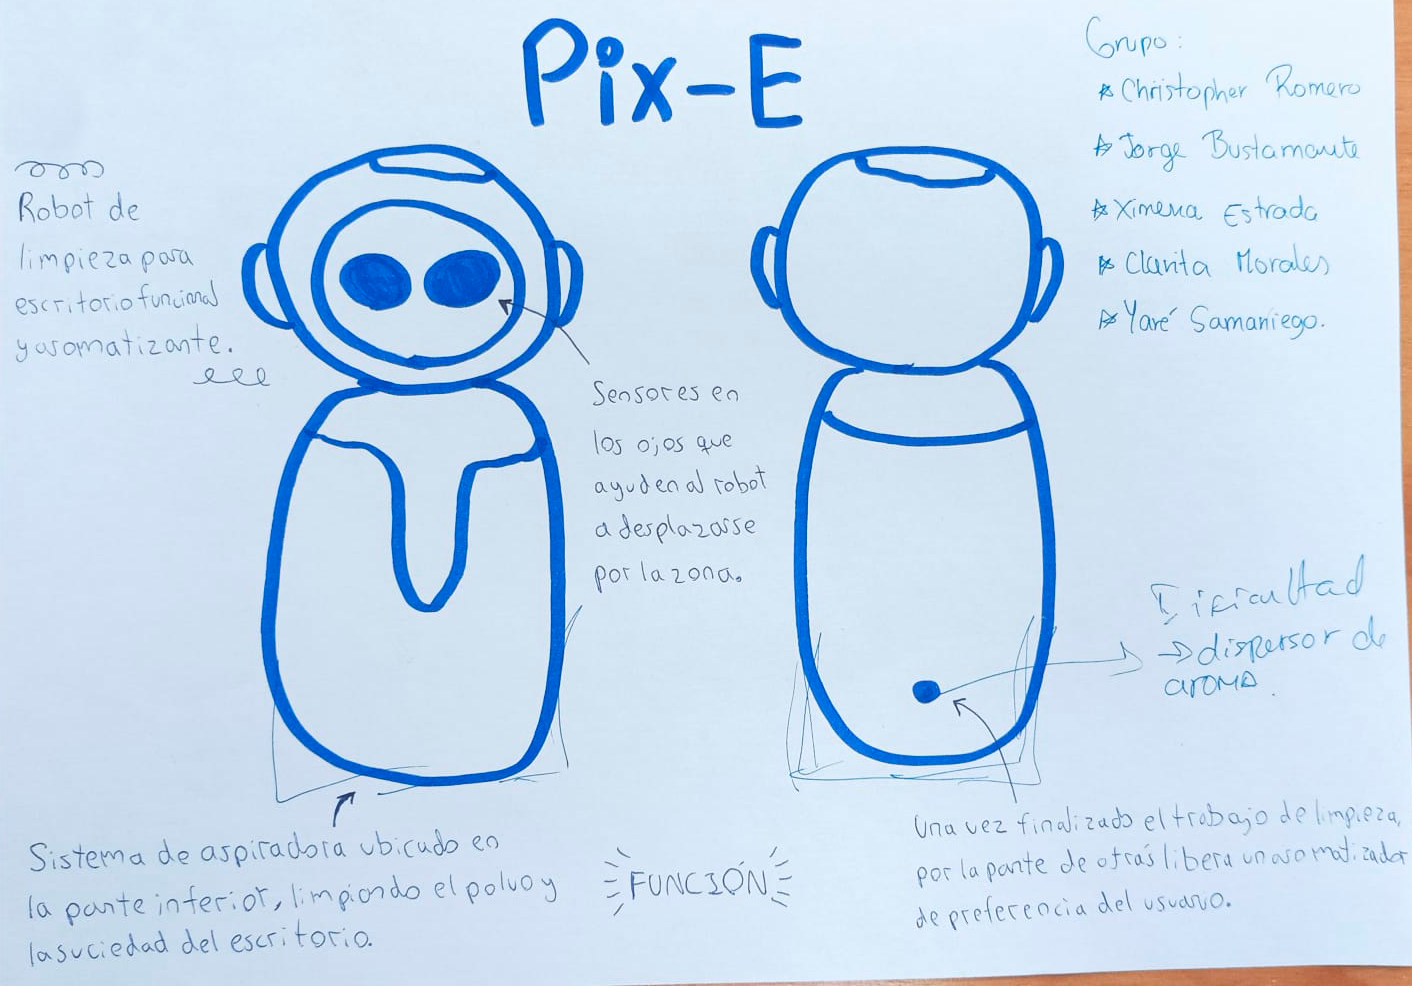 Pix-E
Grupo:
Christopher Romero
Jorge Bustamante
Ximena Estrada
Clarita Morales
Yaré Samaniego.
Robot de
limpieza para
escritorio funcional
y aromatizante.
Sensores en
los ojos que
ayuden al robot
a desplazarse
por la zona.
Dificultad
→ dispersor de
aroma.
Sistema de aspiradora ubicado en
la parte inferior, limpiando el polvo y
la suciedad del escritorio.
FUNCIÓN
Una vez finalizado el trabajo de limpieza,
por la parte de atrás libera un aromatizador
de preferencia del usuario.